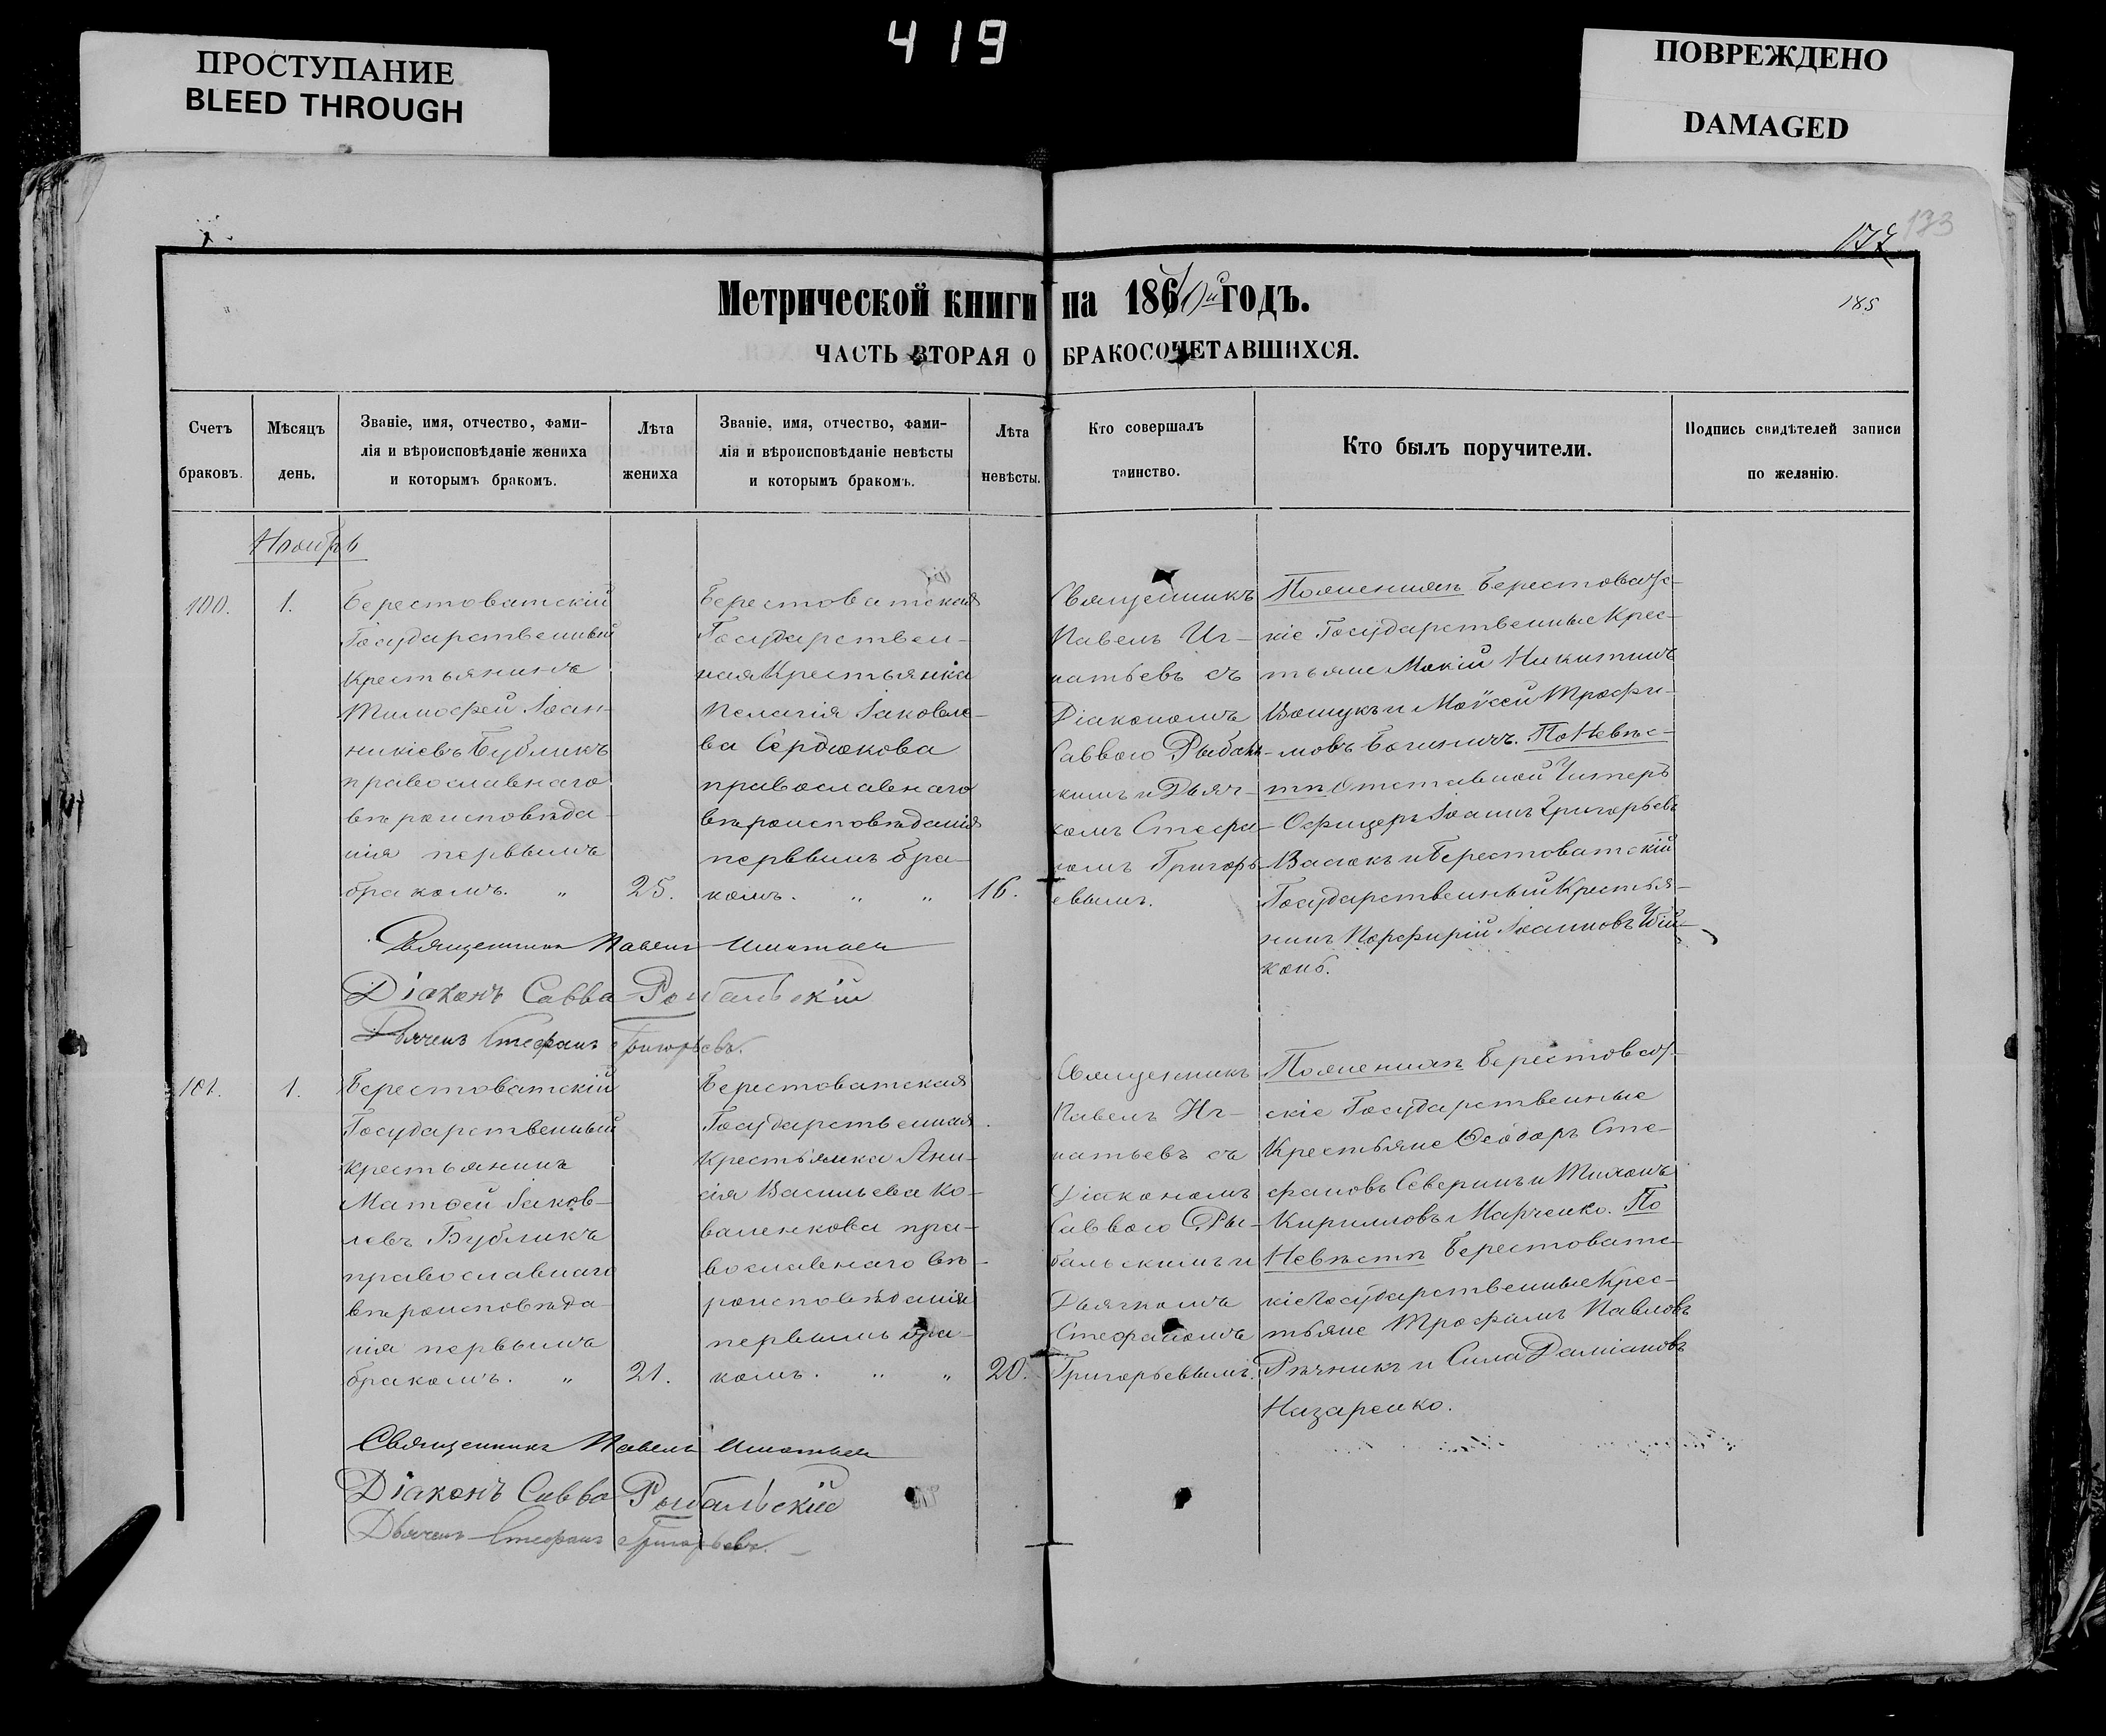 419
ПРОСТУПАНИЕ
BLEED THROUGH
ПОВРЕЖДЕНО
DAMAGED
133
185
Метрической книги на 186 годъ.
ЧАСТЬ ВТОРАЯ О БРАКОСОЧЕТАВШИХСЯ.
Счетъ браковъ.
Мѣсяцъ день.
Званіе, имя, отчество, фами-
лія и вѣроисповѣданіе жениха
и которымъ бракомъ.
Лѣта жениха
Званіе, имя, отчество, фами-
лія и вѣроисповѣданіе невѣсты
и которымъ бракомъ.
Лѣта невѣсты.
Кто совершалъ
таинство.
Кто былъ поручители.
Подпись свидѣтелей записи
по желанію.
Ноябрь
100.
1.
Берестоватскій
Государственный
Крестьянинъ
Тимофей Іоан-
никіевъ Бубликъ
православнаго
вѣроисповѣда-
нія первымъ
бракомъ. „
25.
Берестоватская
Государствен-
ная Крестьянка
Пелагія Іаковле-
ва Сердюкова
православнаго
вѣроисповѣданія
первымъ бра-
комъ. „ „
16.
Священникъ
Павелъ Иг-
натьевъ съ
Діакономъ
Саввою Рыбаль-
скимъ и Дьяч-
комъ Стефа-
номъ Григорь-
евымъ.
По женихѣ Берестоватс-
кіе Государственные Крес-
тьяне Мокій Никитинъ
и Моѵсей Трофи-
мовъ. По Невѣс-
тѣ Отставной Унтеръ
Офицеръ Іоаннъ Григорьевъ
Васюкъ и Берестоватскій
Государственный Крестья-
нинъ Порфирій Іоанновъ
Священникъ Павелъ Игнатьев
Діаконъ Савва Рыбальскій
Дьячекъ Стефанъ Григорьевъ.
101.
1.
Берестоватскій
Государственный
крестьянинъ
Матѳей Іаков-
левъ Бубликъ
православнаго
вѣроисповѣда-
нія первымъ
бракомъ. „
21.
Берестоватская
Государственная
крестьянка Ани-
сія Васильева Ко-
валенкова пра-
вославнаго вѣ-
роисповѣданія
первымъ бра-
комъ. „ „
20.
Священникъ
Павелъ Иг-
натьевъ съ
Діакономъ
Саввою Ры-
бальскимъ и
Дьячкомъ
Стефаномъ
Григорьевымъ.
По женихѣ Берестоват-
скіе Государственные
Крестьяне Ѳеодоръ Сте-
фановъ Северинъ и Тихонъ
Кирилловъ Марченко. По
Невѣстѣ Берестоватс-
кіе Государственные Крес-
тьяне Трофимъ Павловъ
Рѣчникъ и Сила Даміановъ
Назаренко.
Священникъ Павелъ Игнатьев
Діаконъ Савва Рыбальскій
Дьячекъ Стефанъ Григорьевъ.